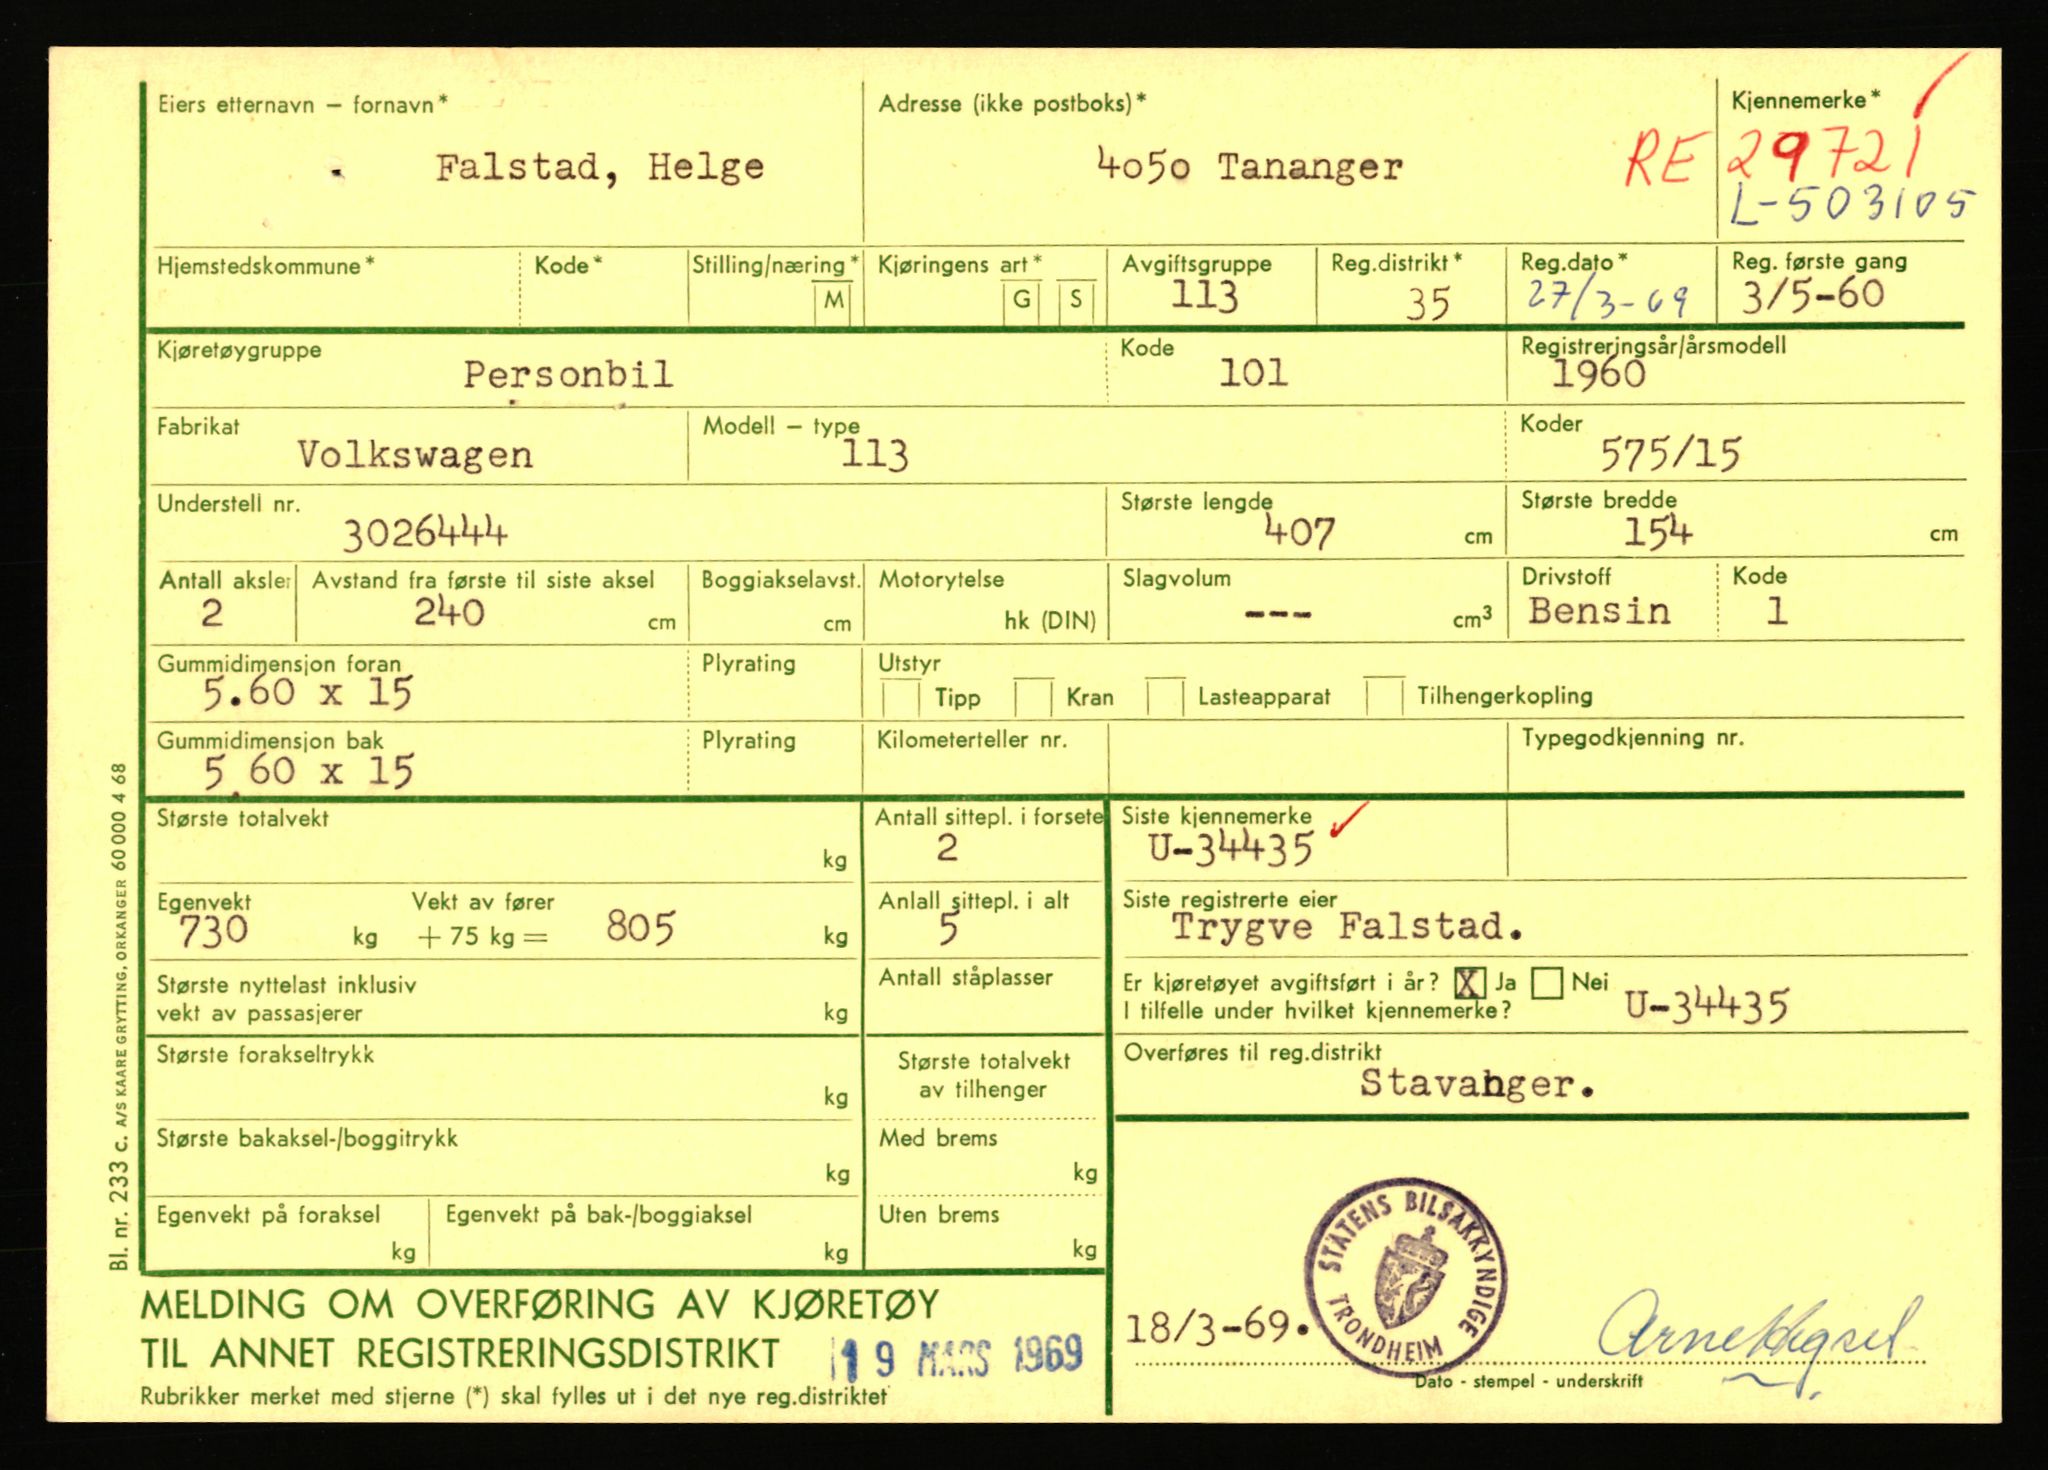 Eiers etternavn – fornavn*
Adresse (ikke postboks)*
Kjennemerke*
Falstad, Helge
4050 Tananger
RE 29721
L-503105
Hjemstedskommune*
Kode*
Stilling/næring*
Kjøringens art*
Avgiftsgruppe
Reg.distrikt*
Reg.dato*
Reg. første gang
M
G
S
113
35
27/3-69
3/5-60
Kjøretøygruppe
Kode
Registreringsår/årsmodell
Personbil
101
1960
Fabrikat
Modell – type
Koder
Volkswagen
113
575/15
Understell nr.
Største lengde
Største bredde
3026444
407 cm
154 cm
Antall aksler
Avstand fra første til siste aksel
Boggiakselavst.
Motorytelse
Slagvolum
Drivstoff
Kode
2
240 cm
cm
hk (DIN)
--- cm³
Bensin
1
Gummidimensjon foran
Plyrating
Utstyr
5.60 x 15
Tipp
Kran
Lasteapparat
Tilhengerkopling
Gummidimensjon bak
Plyrating
Kilometerteller nr.
Typegodkjenning nr.
5.60 x 15
Største totalvekt
kg
Antall sittepl. i forsete
2
Siste kjennemerke
U-34435
Egenvekt
Vekt av fører
730 kg + 75 kg = 805 kg
Anlall sittepl. i alt
5
Siste registrerte eier
Trygve Falstad.
Største nyttelast inklusiv
vekt av passasjerer
kg
Antall ståplasser
Er kjøretøyet avgiftsført i år? X Ja Nei
I tilfelle under hvilket kjennemerke?
U-34435
Største forakseltrykk
kg
Største totalvekt
av tilhenger
Overføres til reg.distrikt
Stavanger.
Største bakaksel-/boggitrykk
kg
Med brems
kg
Egenvekt på foraksel
kg
Egenvekt på bak-/boggiaksel
kg
Uten brems
kg
STATENS BILSAKKYNDIGE
TRONDHEIM
18/3-69.
Dato - stempel - underskrift
MELDING OM OVERFØRING AV KJØRETØY
TIL ANNET REGISTRERINGSDISTRIKT
19 MARS 1969
Rubrikker merket med stjerne (*) skal fylles ut i det nye reg.distriktet
Bl. nr. 233 c. A/S KAARE GRYTTING, ORKANGER 60 000 4 68